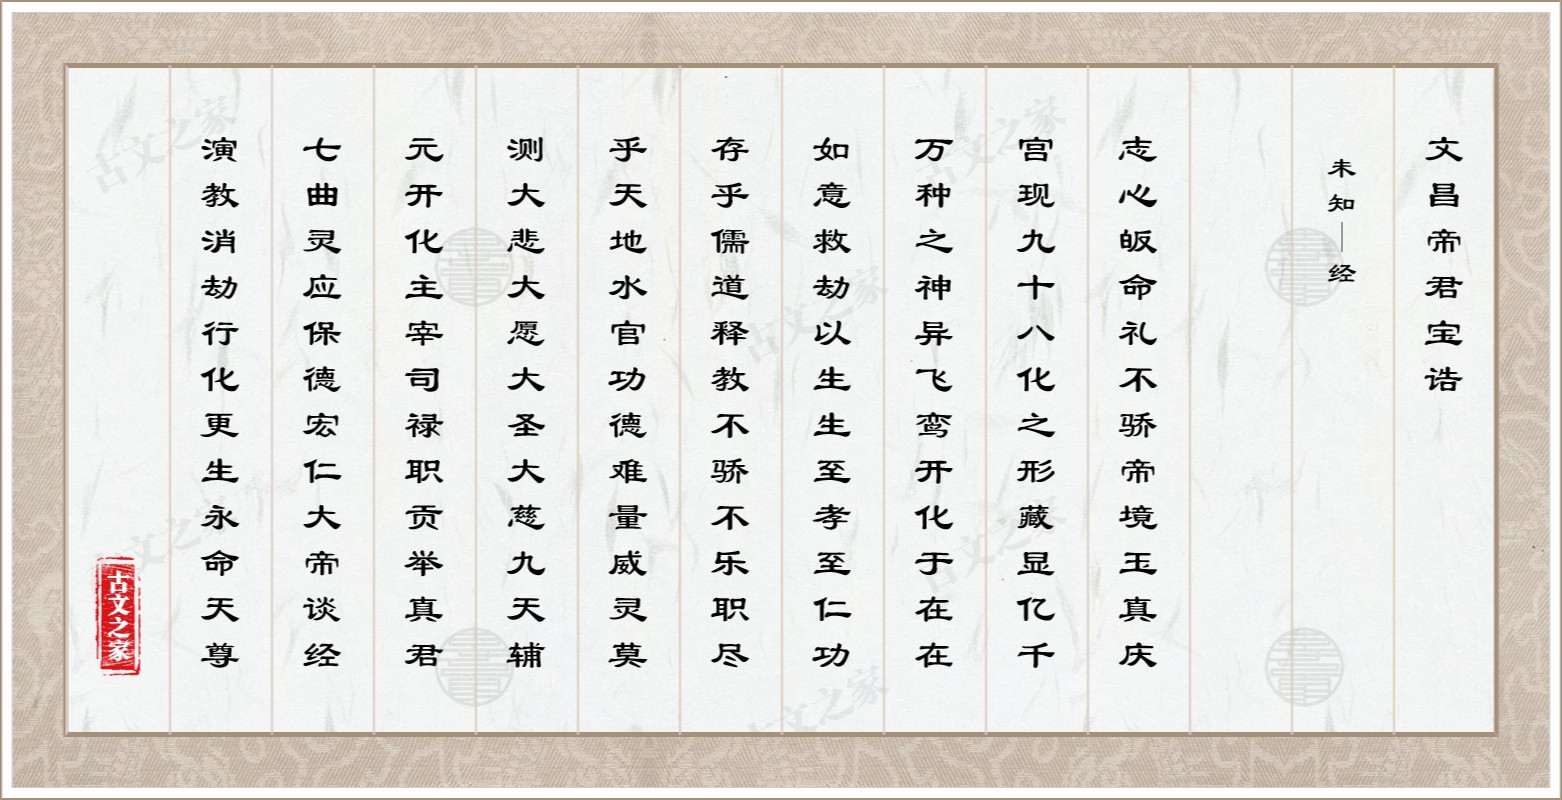 文昌帝君宝诰
未知｜经
志心皈命礼不骄帝境玉真庆
宫现九十八化之形藏显亿千
万种之神异飞鸾开化于在在
如意救劫以生生至孝至仁功
存乎儒道释教不骄不乐职尽
乎天地水官功德难量威灵莫
测大悲大愿大圣大慈九天辅
元开化主宰司禄职贡举真君
七曲灵应保德宏仁大帝谈经
演教消劫行化更生永命天尊
古文之家